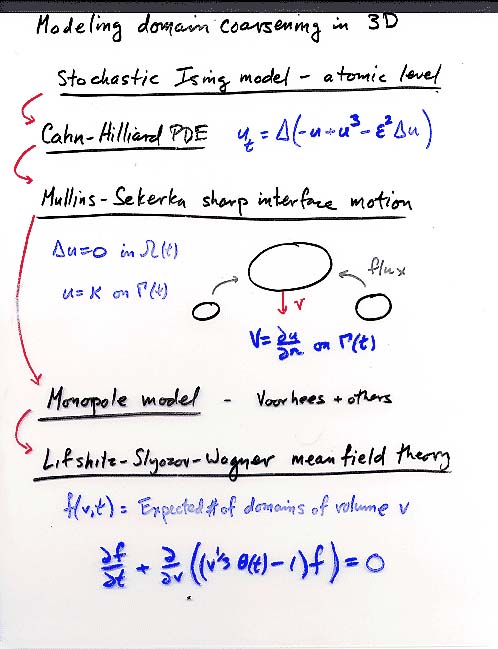 Modeling domain coarsening in 3D
Stochastic Ising model - atomic level
Cahn-Hilliard PDE u_t = Δ(-u+u³-ε²Δu)
Mullins-Sekerka sharp interface motion
Δu=0 in Ω(t)
flux
u=κ on Γ(t)
v
V=∂u/∂n on Γ(t)
Monopole model - Voorhees + others
Lifshitz-Slyozov-Wagner mean field theory
f(v,t) = Expected # of domains of volume v
∂f/∂t + ∂/∂v((v^1/3 θ(t)-1)f)=0